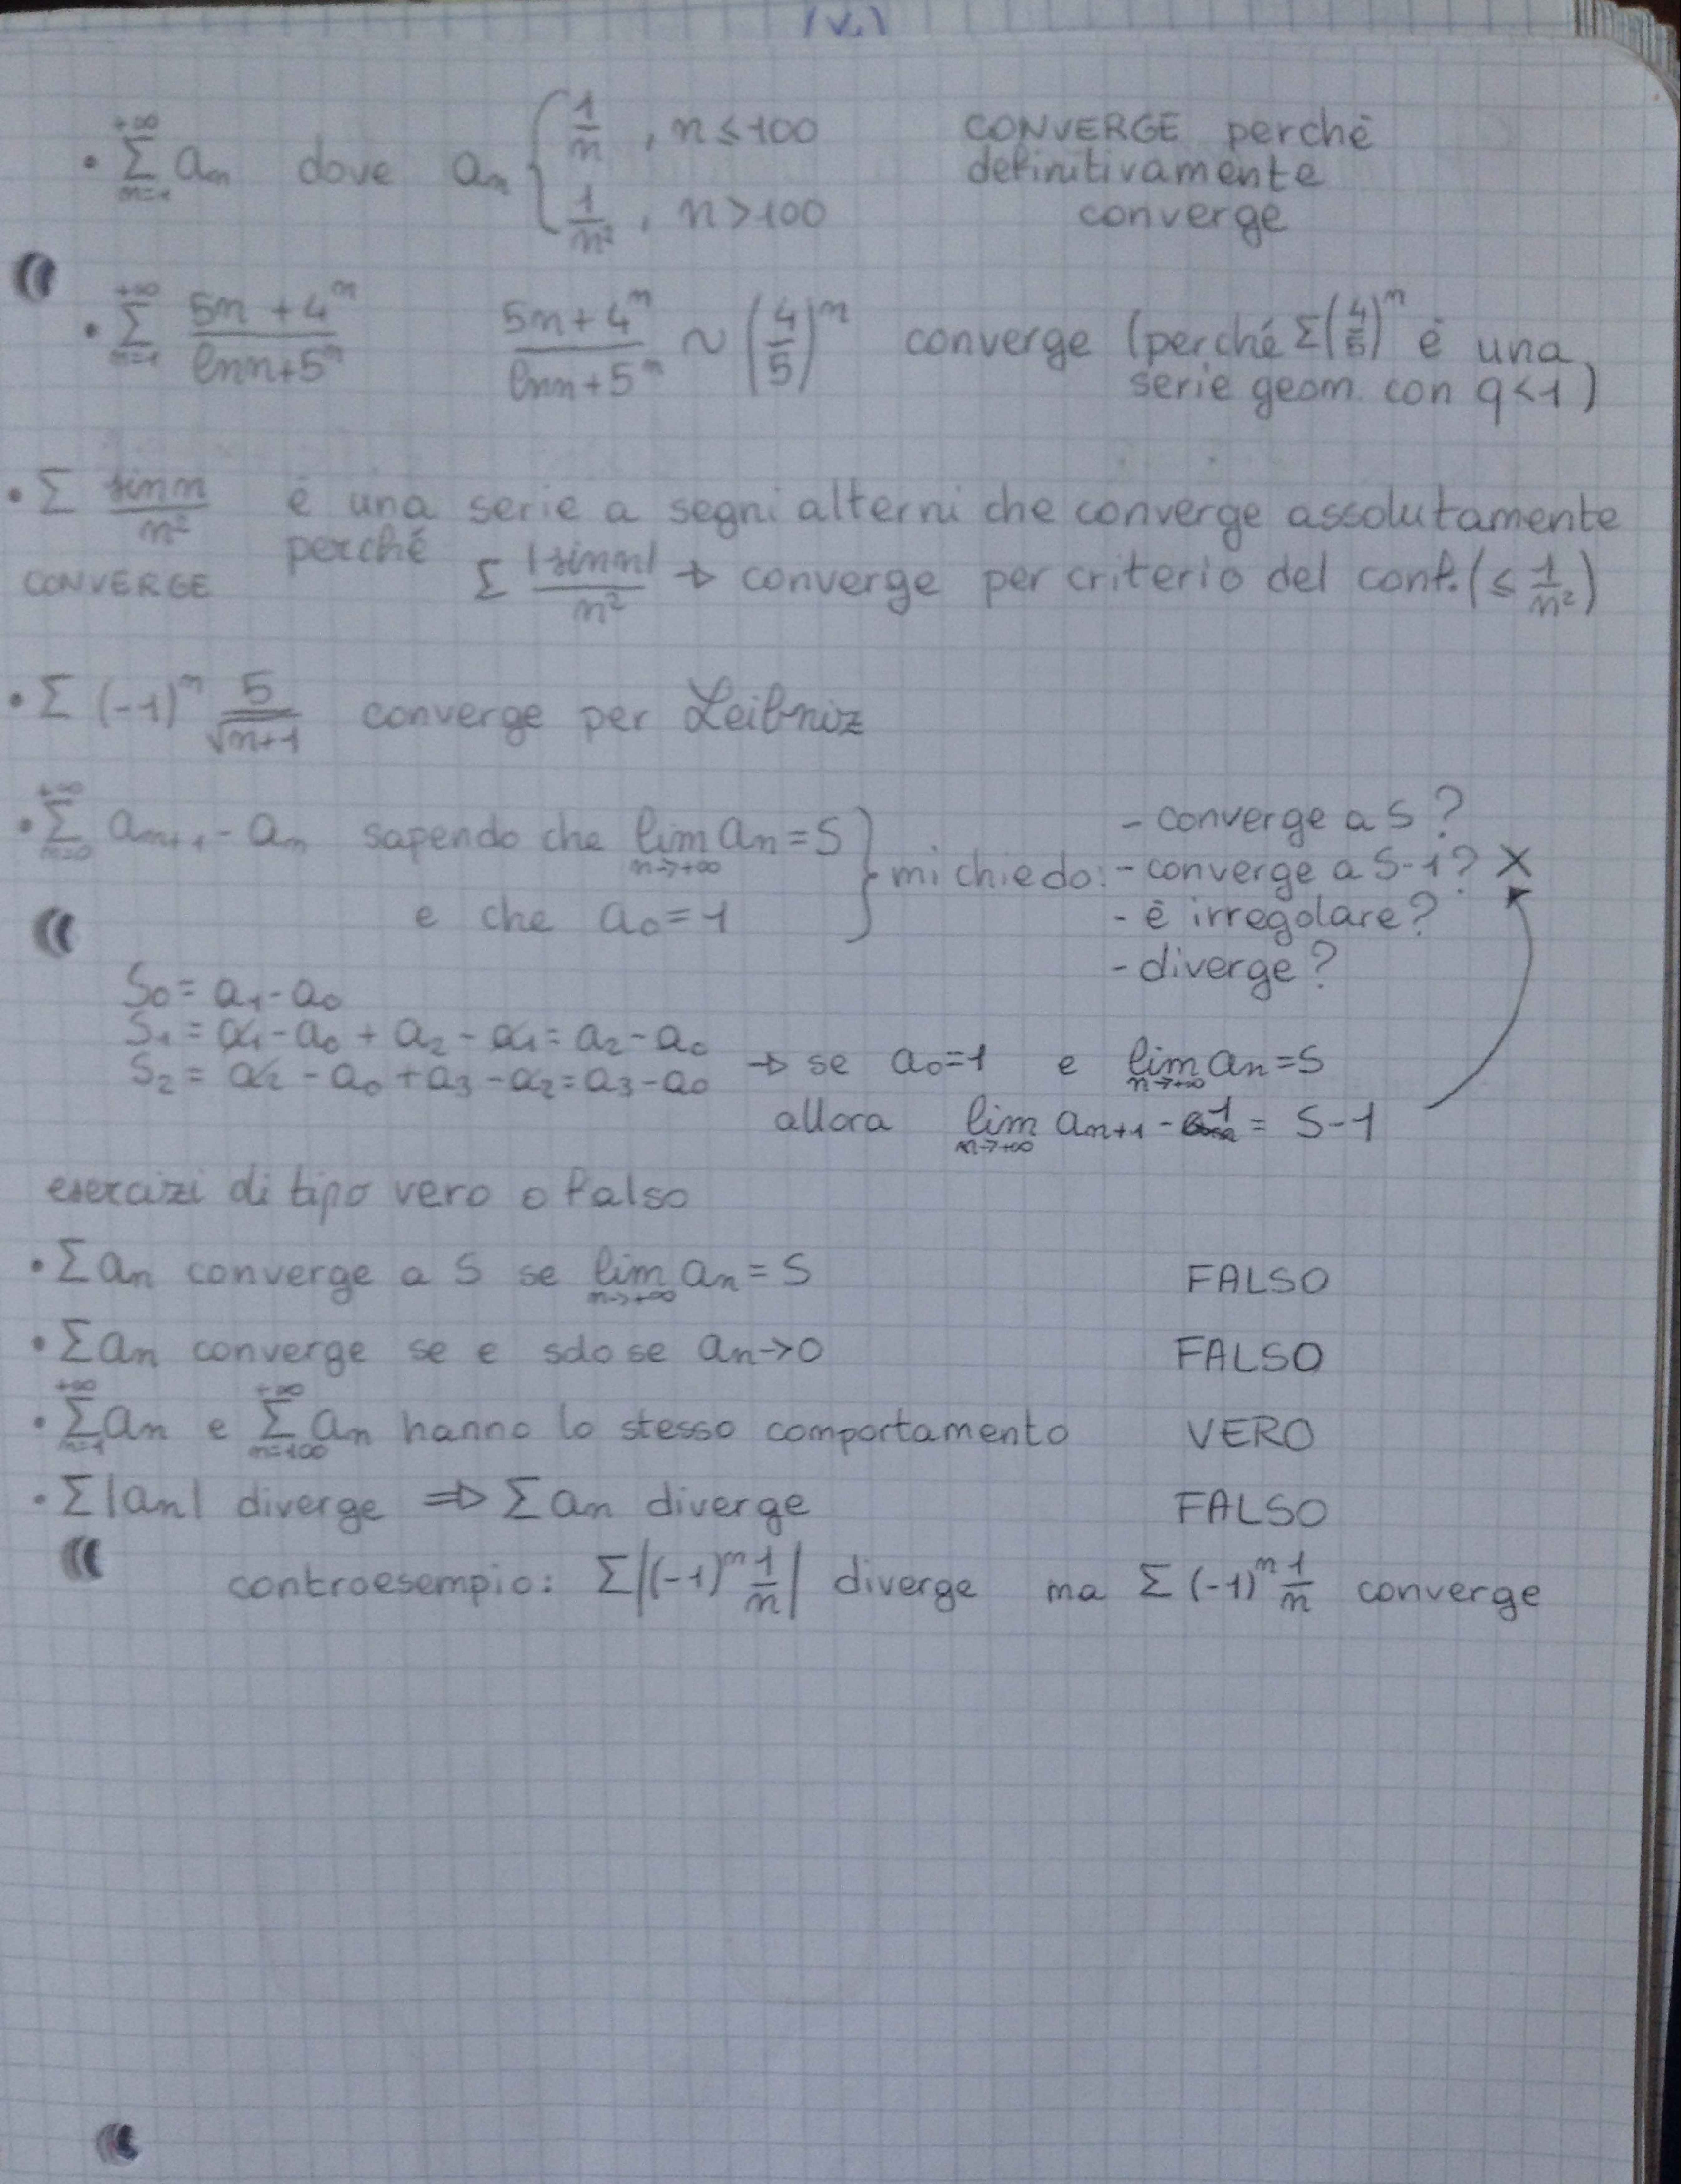 (v.)
• +∞ Σ n=1 an dove an { 1/n , n ≤ 100 CONVERGE perché
definitivamente
1/n² , n > 100 converge
• +∞ Σ n=1 (5n + 4^n)/(lnn + 5^n) (5n + 4^n)/(lnn + 5^n) ~ (4/5)^n converge (perché Σ(4/5)^n è una
serie geom. con q<1)
• Σ sinn/n² è una serie a segni alterni che converge assolutamente
perché Σ |sinn|/n² → converge per criterio del conf. (≤ 1/n²)
CONVERGE
• Σ (-1)^n 5/√(n+1) converge per Leibniz
• +∞ Σ n=0 an+1 - an sapendo che lim n→+∞ an = S
e che a0 = 1
} mi chiedo:
- converge a S?
- converge a S-1? X
- è irregolare?
- diverge?
S0 = a1 - a0
S1 = a1 - a0 + a2 - a1 = a2 - a0
S2 = a2 - a0 + a3 - a2 = a3 - a0
→ se a0 = 1 e lim n→+∞ an = S
allora lim n→+∞ an+1 - 1 = S-1
esercizi di tipo vero o falso
• Σ an converge a S se lim n→+∞ an = S FALSO
• Σ an converge se e solo se an→0 FALSO
• +∞ Σ n=1 an e +∞ Σ n=100 an hanno lo stesso comportamento VERO
• Σ|an| diverge ⇒ Σ an diverge FALSO
controesempio: Σ|(-1)^n 1/n| diverge ma Σ (-1)^n 1/n converge